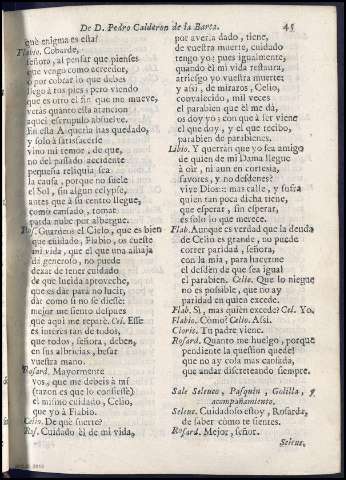 De D. Pedro Calderon de la Barca. 45
què enigma es esta?
Flavio. Cobarde,
señora, al pensar que pienses
que vengo como acreedor,
o por cobrar lo que debes
llego à tus pies; pero viendo
que es otro el fin que me mueve,
veràs quanto ella atencion
aquel escrupulo absuelve.
En esta Aqueria has quedado,
y solo à satisfacerte
vino mi temor, de que,
no del passado accidente
pequeña reliquia sea
la causa, porque no suele
el Sol, sin algun eclypse,
antes que à su centro llegue,
como cansado, tomar
parda nube por albergue.
Ros. Guardeos el Cielo, que es bien
que cuidado, Flabio, os cueste
mi vida, que el que una alhaja
dà generoso, no puede
dexar de tener cuidado
de que lucida aproveche,
que es dàr para no lucir,
dar como si no se diesse:
mejor me siento despues
que aqui me reparè. Cel. Esse
es interès tan de todos,
que todos, señora, deben,
en sus albricias, besar
vuestra mano.
Rosard. Mayormente
vos, que me debeis à mi
(razon es que lo confiesse)
el mismo cuidado, Celio,
que yo à Flabio.
Celio. De què suerte?
Ros. Cuidado èl de mi vida,
por averla dado, tiene,
de vuestra muerte, cuidado
tengo yo; pues igualmente,
quando èl mi vida restaura,
arriesgo yo vuestra muerte;
y assi, de miraros, Celio,
convalecido, mil veces
el parabien que èl me dà,
os doy yo; con que à ser viene
el que doy, y el que recibo,
parabien de parabienes.
Libio. Y querràn que yo sea amigo
de quien de mi Dama llegue
à oir, ni aun en cortesia,
favores, y no desdenes?
vive Dios:: mas calle, y sufra
quien tan poca dicha tiene,
que esperar, sin esperar,
es solo lo que merece.
Flab. Aunque es verdad que la deuda
de Celio es grande, no puede
correr paridad, señora,
con la mia, para hacerme
el desdèn de que sea igual
el parabien. Celio. Que lo niegue
no es possible, que no ay
paridad en quien excede.
Flab. Si, mas quièn excede? Cel. Yo.
Flabio. Còmo? Celio. Assi.
Cloris. Tu padre viene.
Rosard. Quanto me huelgo, porque
pendiente la question quede!
que no ay cosa mas cansada,
que andar discreteando siempre.
Sale Seleuco, Pasquin, Golilla, y
acompañamiento.
Seleuc. Cuidadoso estoy, Rosarda,
de saber còmo te sientes.
Rosard. Mejor, señor.
Seleuc.